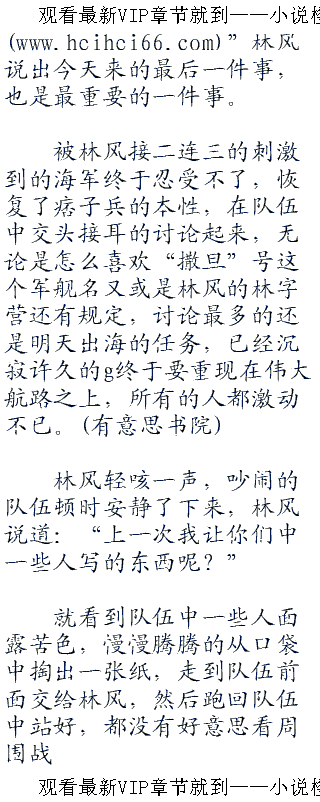 观看最新VIP章节就到——小说
(www.hcihci66.com)”林风
说出今天来的最后一件事，
也是最重要的一件事。
被林风接二连三的刺激
到的海军终于忍受不了，恢
复了痞子兵的本性，在队伍
中交头接耳的讨论起来，无
论是怎么喜欢“撒旦”号这
个军舰名又或是林风的林字
营还有规定，讨论最多的还
是明天出海的任务，已经沉
寂许久的g终于要重现在伟大
航路之上，所有的人都激动
不已。(有意思书院)
林风轻咳一声，吵闹的
队伍顿时安静了下来，林风
说道：“上一次我让你们中
一些人写的东西呢？”
就看到队伍中一些人面
露苦色，慢慢腾腾的从口袋
中掏出一张纸，走到队伍前
面交给林风，然后跑回队伍
中站好，都没有好意思看周
围战
观看最新VIP章节就到——小说